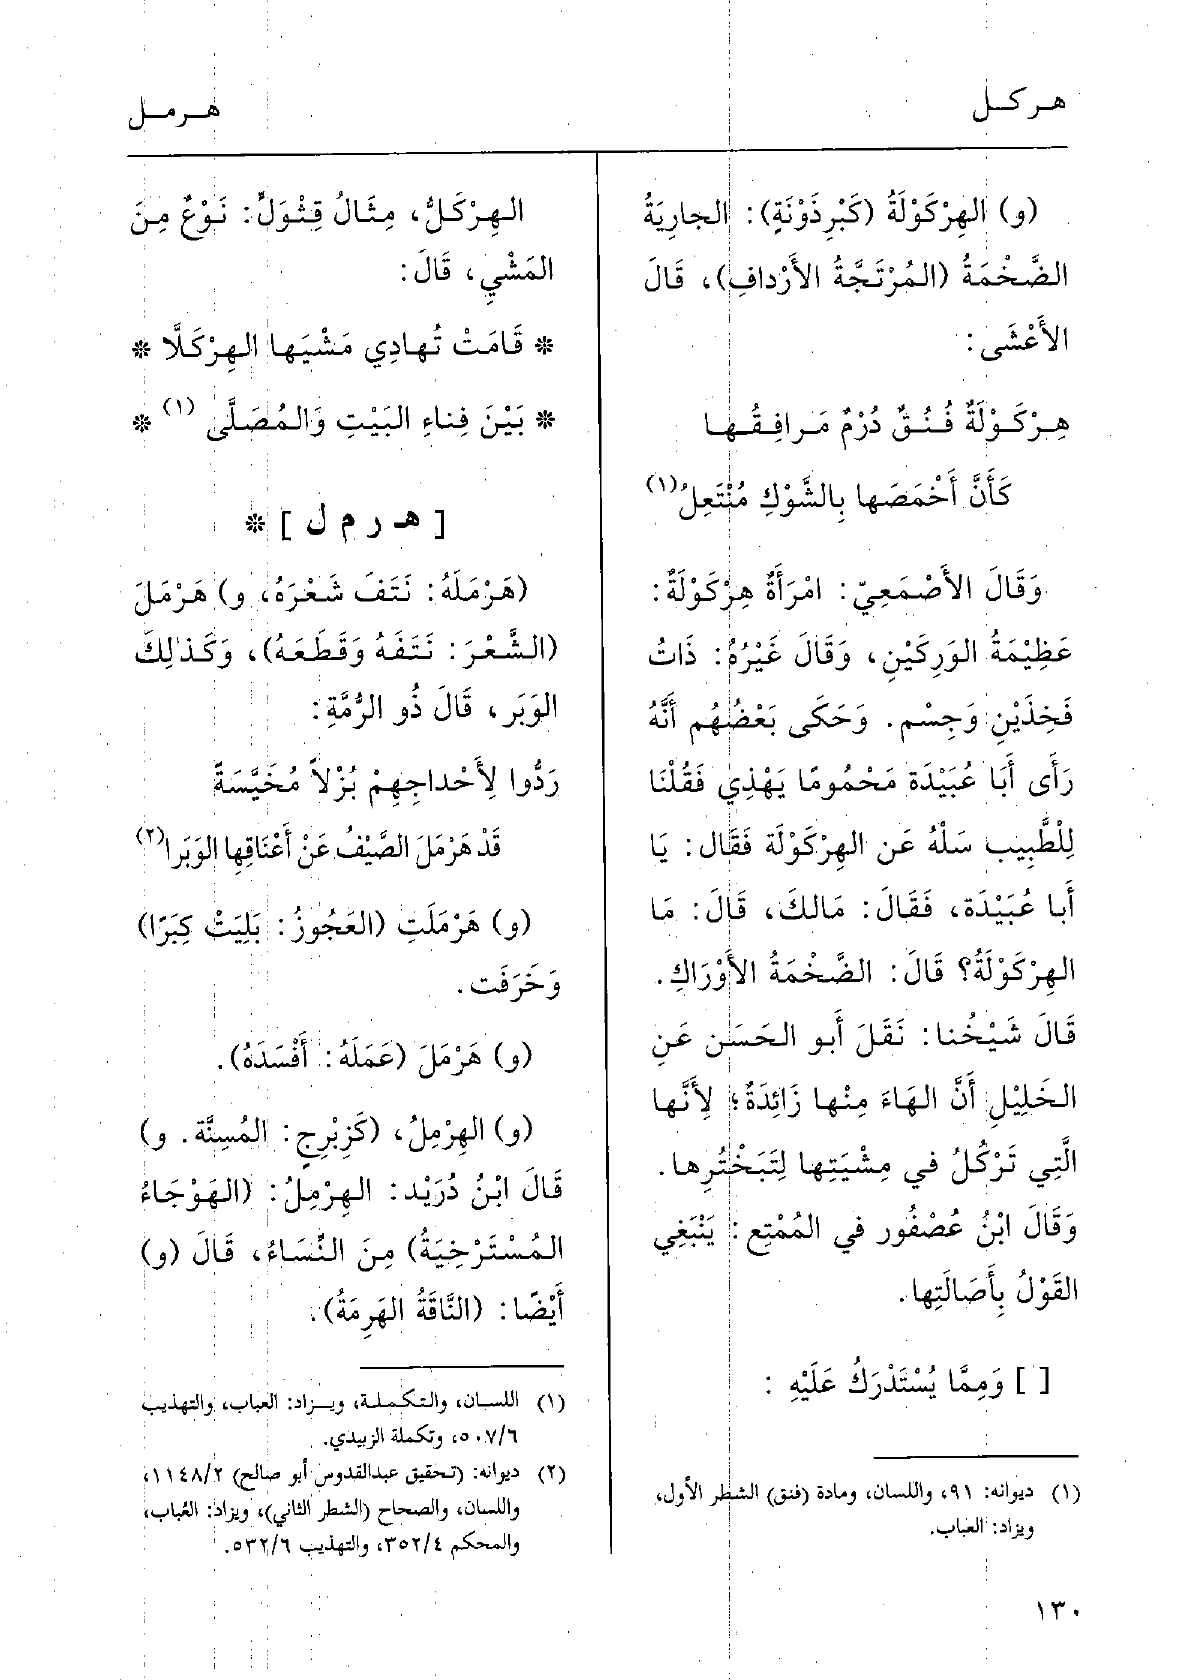 هركل
هرمل
(و) الهِرْكَوْلَةُ (كَبِرْذَوْنَةٍ): الجارِيَةُ
الضَّخْمَةُ (المُرْتَجَّةُ الأَرْدافِ)، قَالَ
الأَعْشَى:
هِرْكَوْلَةٌ فُنُقٌ دُرْمٌ مَرافِقُها
كَأَنَّ أَخْمَصَها بِالشَّوْكِ مُنْتَعِلُ(١)
وَقَالَ الأَصْمَعِيّ: امْرَأَةٌ هِرْكَوْلَةٌ:
عَظِيْمَةُ الوَرِكَيْنِ، وَقَالَ غَيْرُهُ: ذَاتُ
فَخِذَيْنِ وَجِسْم. وَحَكَى بَعْضُهُم أَنَّهُ
رَأَى أَبَا عُبَيْدَة مَحْمُومًا يَهْذِي فَقُلْنَا
لِلْطَّبِيب سَلْهُ عَن الهِرْكَوْلَة فَقَال: يَا
أَبا عُبَيْدَة، فَقَالَ: مَالكَ، قَالَ: مَا
الهِرْكَوْلَةُ؟ قَالَ: الضَّخْمَةُ الأَوْرَاكِ.
قَالَ شَيْخُنا: نَقَلَ أَبو الحَسَن عَنِ
الخَلِيْلِ أَنَّ الهَاءَ مِنْها زَائِدَةٌ؛ لِأَنَّها
الَّتِي تَرْكُلُ في مِشْيَتِها لِتَبَخْتُرِها.
وَقَالَ ابْنُ عُصْفُور في المُمْتِع: يَنْبَغِي
القَوْلُ بِأَصَالَتِها.
[ ] وَمِمَّا يُسْتَدْرَكُ عَلَيْهِ :
(١) ديوانه: ٩١، واللسان، ومادة (فنق) الشطر الأول،
ويزاد: العباب.
الهِرْكَلُّ، مِثَالُ قِثْوَلٍّ: نَوْعٌ مِنَ
المَشْيِ، قَالَ:
* قَامَتْ تُهادِي مَشْيَها الهِرْكَلَّا *
* بَيْنَ فِناءِ البَيْتِ وَالمُصَلَّى (١) *
[ هـ ر م ل ] *
(هَرْمَلَهُ: نَتَفَ شَعْرَهُ، و) هَرْمَلَ
(الشَّعْرَ: نَتَفَهُ وَقَطَعَهُ)، وَكَذلِكَ
الوَبَر، قَالَ ذُو الرُّمَّةِ:
رَدُّوا لِأَحْداجِهِمْ بُزْلاً مُخَيَّسَةً
قَدْ هَرْمَلَ الصَّيْفُ عَنْ أَعْنَاقِها الوَبَرا(٢)
(و) هَرْمَلَتِ (العَجُوزُ: بَلِيَتْ كِبَرًا)
وَخَرَفَت.
(و) هَرْمَلَ (عَمَلَهُ: أَفْسَدَهُ).
(و) الهِرْمِلُ، (كَزِبْرِجٍ: المُسِنَّة. و)
قَالَ ابْنُ دُرَيْد: الهِرْمِلُ: (الهَوْجَاءُ
المُسْتَرْخِيَةُ) مِنَ النِّسَاءُ، قَالَ (و)
أَيْضًا: (النَّاقَةُ الهَرِمَةُ).
(١) اللسان، والتكملة، ويزاد: العباب، والتهذيب
٥٠٧/٦، وتكملة الزبيدي.
(٢) ديوانه: (تحقيق عبدالقدوس أبو صالح) ١١٤٨/٢،
واللسان، والصحاح (الشطر الثاني)، ويزاد: العُباب،
والمحكم ٣٥٢/٤، والتهذيب ٥٣٢/٦.
١٣٠